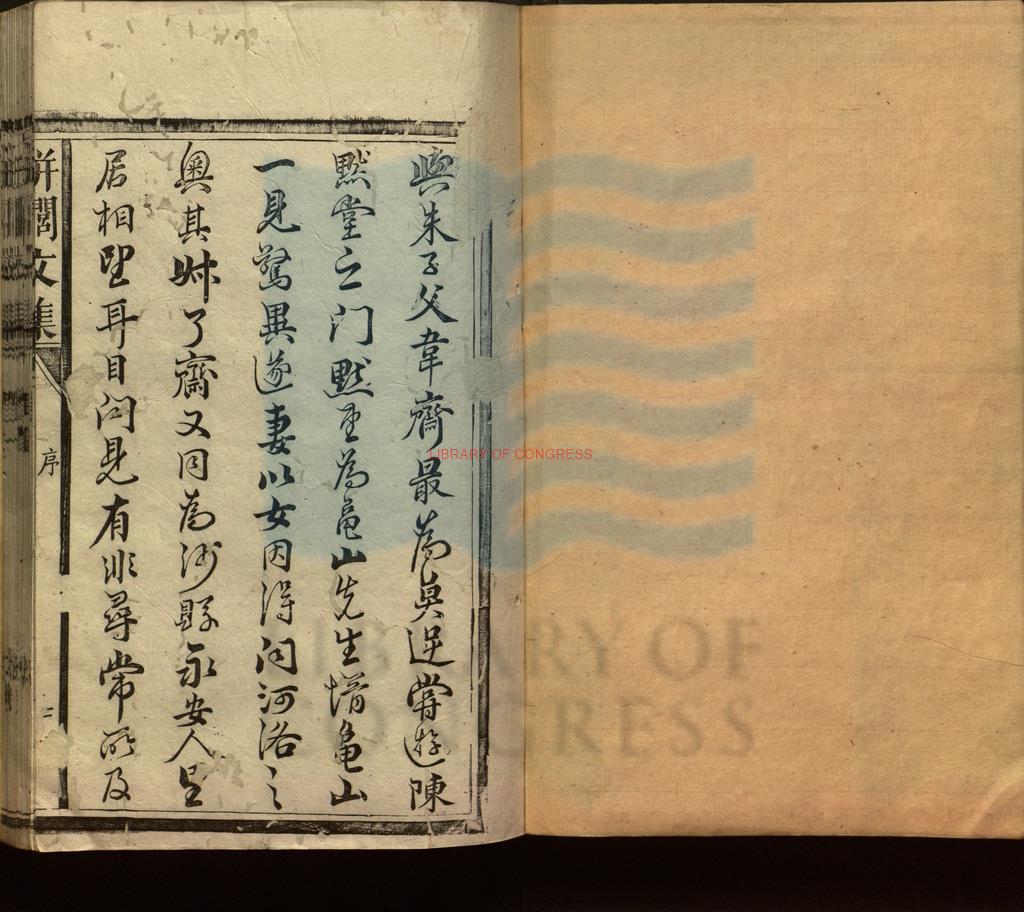 與朱子父韋齋最為莫逆嘗遊陳
默堂之门默堂為龜山先生壻龜山
一見驚異遂妻以女因得闻河洛之
奥其姊了齋又同為沙縣永安人里
居相望耳目闻見有非尋常所及
栟櫚文集
序
二
LIBRARY OF CONGRESS
LIBRARY OF
CONGRESS